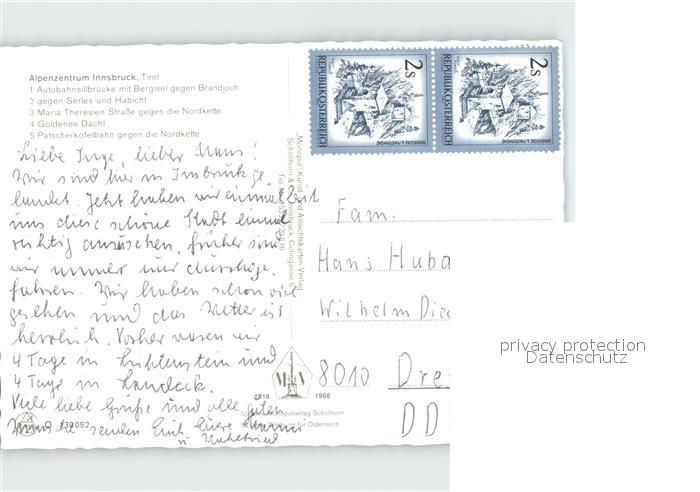 Alpenzentrum Innsbruck, Tirol
1 Autobahnsillbrücke mit Bergisel gegen Brandjoch
2 gegen Serles und Habicht
3 Maria Theresien Straße gegen die Nordkette
4 Goldenes Dachl
5 Patscherkofelbahn gegen die Nordkette
Liebe Inge, lieber Hans!
Wir sind hier in Insbruck ge
landet. Jetzt haben wir einmal Zeit
uns diese schöne Stadt einmal
richtig anzusehen, früher sind
wir immer nur durchge
fahren. Wir haben schon viel
gesehen und das Wetter ist
herrlich. Vorher waren wir
4 Tage in Lichtenstein und
4 Tage in Landeck.
Viele liebe Grüße und alle guten
Wünsche senden Euch Eure
u.
"Monopol" Kunst- und Ansichtskarten Verlag
REPUBLIK ÖSTERREICH
2S
REPUBLIK ÖSTERREICH
2S
Fam.
Hans Huba
Wilhelm Die
8010 Dre
DD
1918 1968
privacy protection
Datenschutz